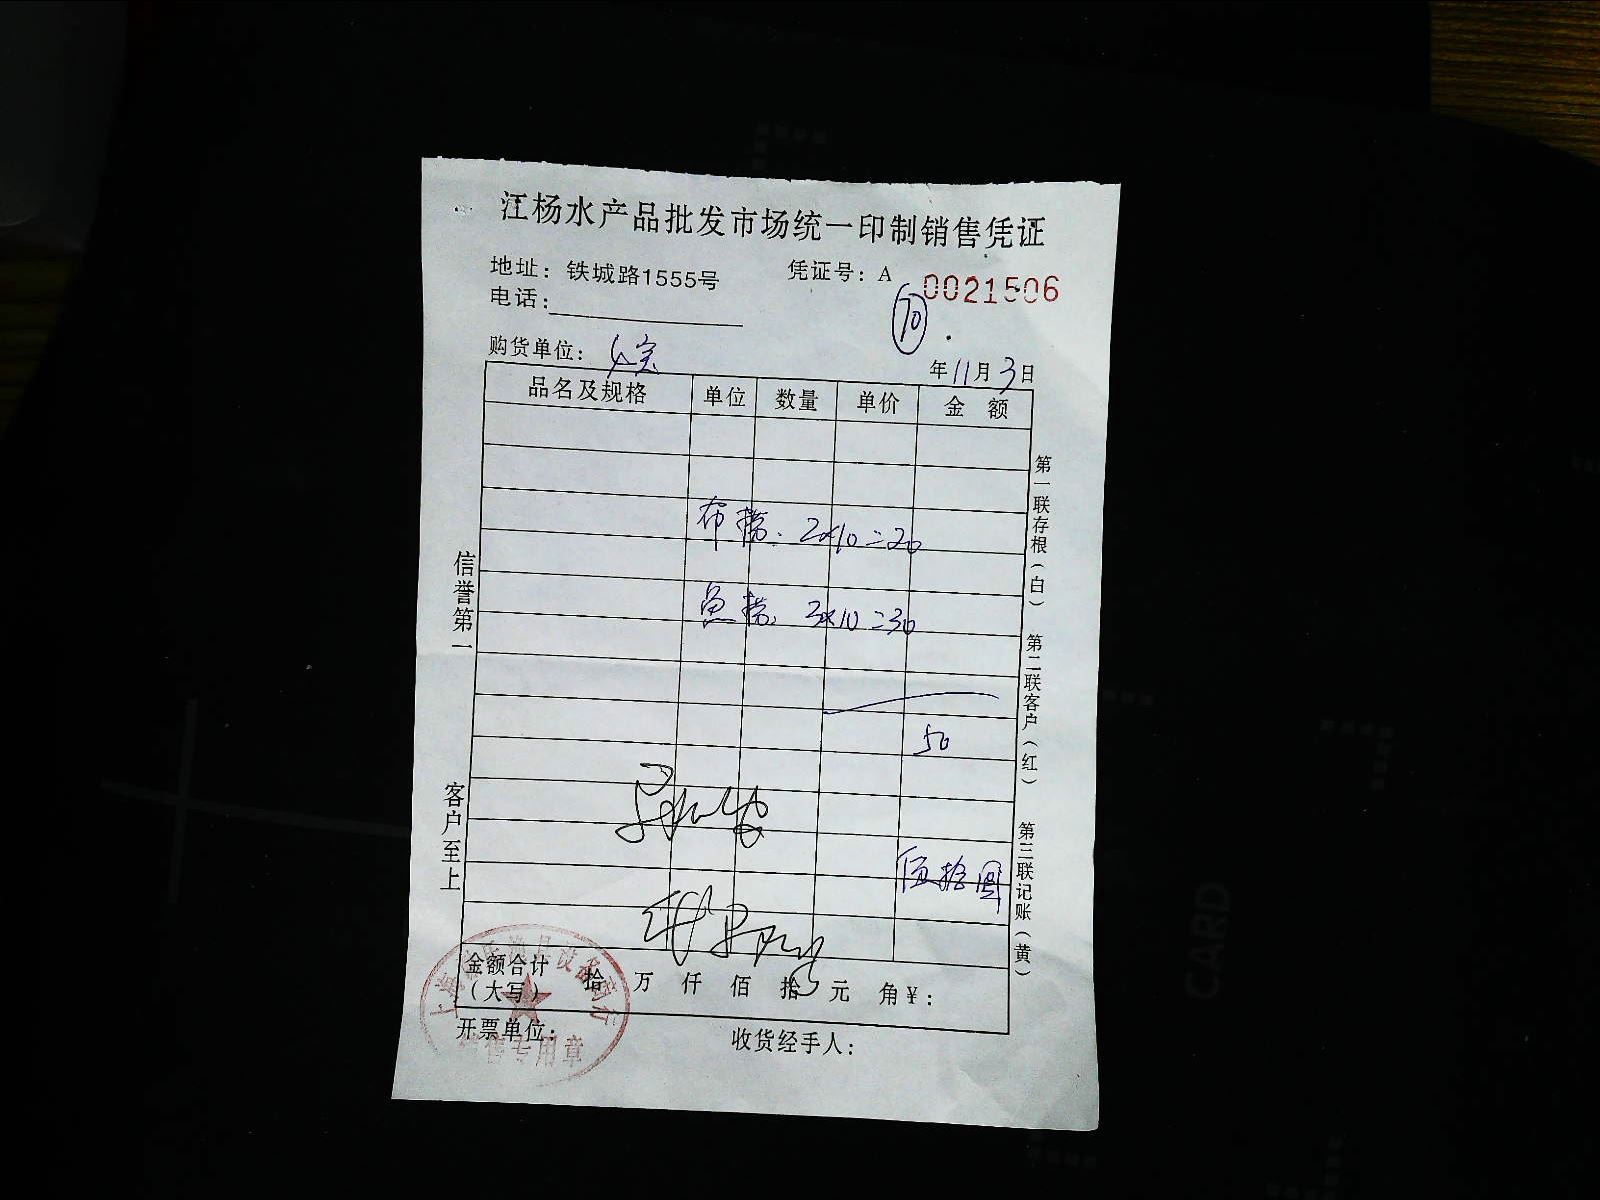 江杨水产品批发市场统一印制销售凭证
地址：铁城路1555号
凭证号：A 0021506
电话：
70
购货单位：
年11月3日
品名及规格 单位 数量 单价 金 额
布 2×10=20
鱼 3×10=30
50
伍拾圆
金额合计（大写） 拾 万 仟 佰 拾 元 角 ¥：
开票单位：
收货经手人：
信誉第一
客户至上
第一联存根（白）
第二联客户（红）
第三联记账（黄）
销售专用章
CARD